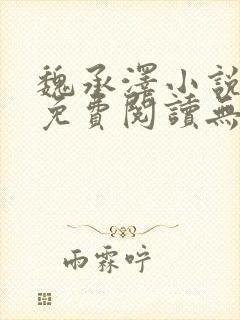 魏承澤小說
免費閱讀無
雨霖咛